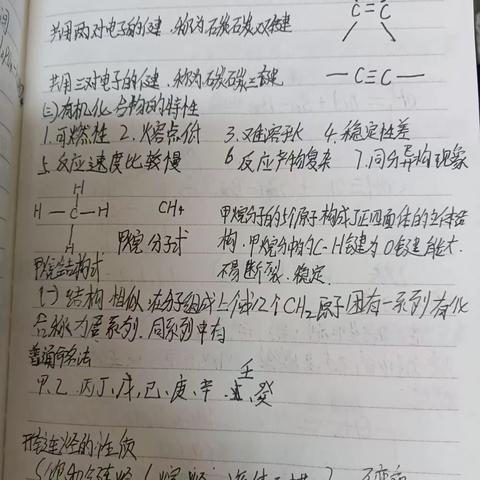 C=C
共用两对电子的键,称为石炭石炭双键
共用三对电子的键,称为石炭石炭三键 —C≡C—
(三)有机化合物的特性
1.可燃性 2.火容点低 3.难容于水 4.稳定性差
5.反应速度比较慢 6反应产物复杂 7.同分异构现象
H
H—C—H CH4
H
甲烷分子式
甲烷结构式
甲烷分子的5个原子构成了正四面体的立体结
构.甲烷分中的C-H键为σ键,能大.
不易断裂.稳定.
(一)结构相似,在分子组成上个或12个CH2原子团有一系列有化
合称为同系列.同系列中有
普通命名法
甲、乙、丙、丁、戊、已、庚、辛、壬、癸
开链烃的性质